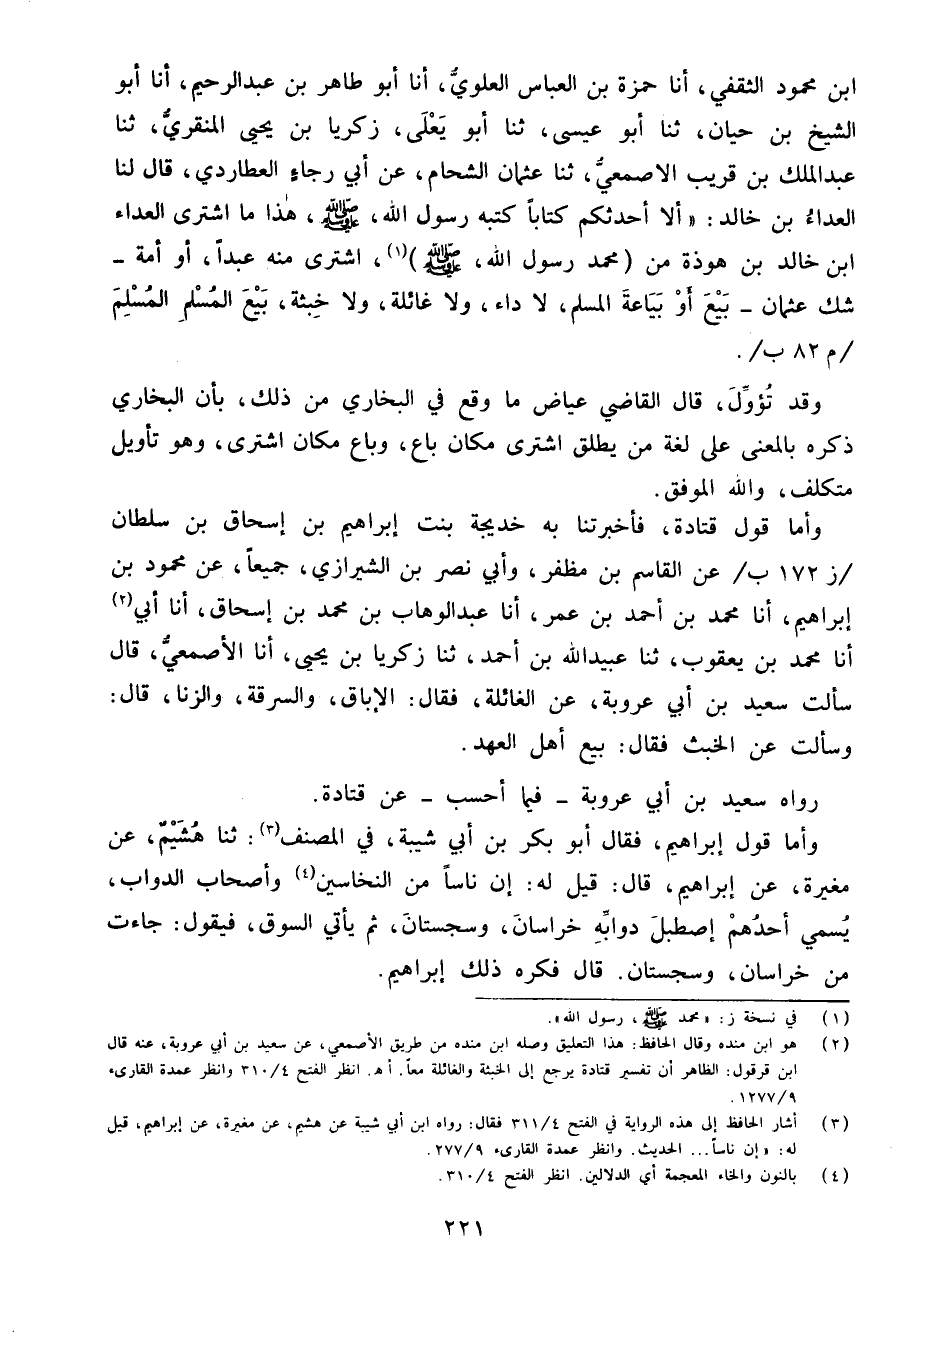 ابن محمود الثقفي، أنا حمزة بن العباس العلويُّ، أنا أبو طاهر بن عبدالرحيم، أنا أبو
الشيخ بن حيان، ثنا أبو عيسى، ثنا أبو يَعْلَى، زكريا بن يحيى المنقريُّ، ثنا
عبدالملك بن قريب الاصمعيُّ، ثنا عثمان الشحام، عن أبي رجاءٍ العطاردي، قال لنا
العداءُ بن خالد: «ألا أحدثكم كتاباً كتبه رسول الله، ﷺ، هٰذا ما اشترى العداء
ابن خالد بن هوذة من (محمد رسول الله، ﷺ)(١)، اشترى منه عبداً، أو أمة ــ
شك عثمان ــ بَيْعَ أَوْ بَيَاعةَ المسلم، لا داء، ولا غائلة، ولا خِبثة، بَيْعَ المُسْلمِ المُسْلِمَ
/م ٨٢ ب/.
وقد تُؤوِّلَ، قال القاضي عياض ما وقع في البخاري من ذلك، بأن البخاري
ذكره بالمعنى على لغة من يطلق اشترى مكان باع، وباع مكان اشترى، وهو تأويل
متكلف، والله الموفق.
وأما قول قتادة، فأخبرتنا به خديجة بنت إبراهيم بن إسحاق بن سلطان
/ز ١٧٢ ب/ عن القاسم بن مظفر، وأبي نصر بن الشيرازي، جميعاً، عن محمود بن
إبراهيم، أنا محمد بن أحمد بن عمر، أنا عبدالوهاب بن محمد بن إسحاق، أنا أبي(٢)
أنا محمد بن يعقوب، ثنا عبيدالله بن أحمد، ثنا زكريا بن يحيى، أنا الأصمعيُّ، قال
سألت سعيد بن أبي عروبة، عن الغائلة، فقال: الإباق، والسرقة، والزنا، قال:
وسألت عن الخبث فقال: بيع أهل العهد.
رواه سعيد بن أبي عروبة ــ فيما أحسب ــ عن قتادة.
وأما قول إبراهيم، فقال أبو بكر بن أبي شيبة، في المصنف(٣): ثنا هُشَيْمٌ، عن
مغيرة، عن إبراهيم، قال: قيل له: إن ناساً من النخاسين(٤) وأصحاب الدواب،
يُسمي أحدُهمْ إصطبلَ دوابِّهِ خراسانَ، وسجستانَ، ثم يأتي السوق، فيقول: جاءت
من خراسان، وسجستان. قال فكره ذلك إبراهيم.
(١) في نسخة ز: «محمد ﷺ، رسول الله».
(٢) هو ابن منده وقال الحافظ: هذا التعليق وصله ابن منده من طريق الأصمعي، عن سعيد بن أبي عروبة، عنه قال
ابن قرقول: الظاهر أن تفسير قتادة يرجع إلى الخبثة والغائلة معاً. أ هـ. انظر الفتح ٣١٠/٤ وانظر عمدة القارىء
١٢٧٧/٩.
(٣) أشار الحافظ إلى هذه الرواية في الفتح ٣١١/٤ فقال: رواه ابن أبي شيبة عن هشيم، عن مغيرة، عن إبراهيم، قيل
له: «إن ناساً... الحديث. وانظر عمدة القارىء ٢٧٧/٩.
(٤) بالنون والخاء المعجمة أي الدلالين. انظر الفتح ٣١٠/٤.
٢٢١